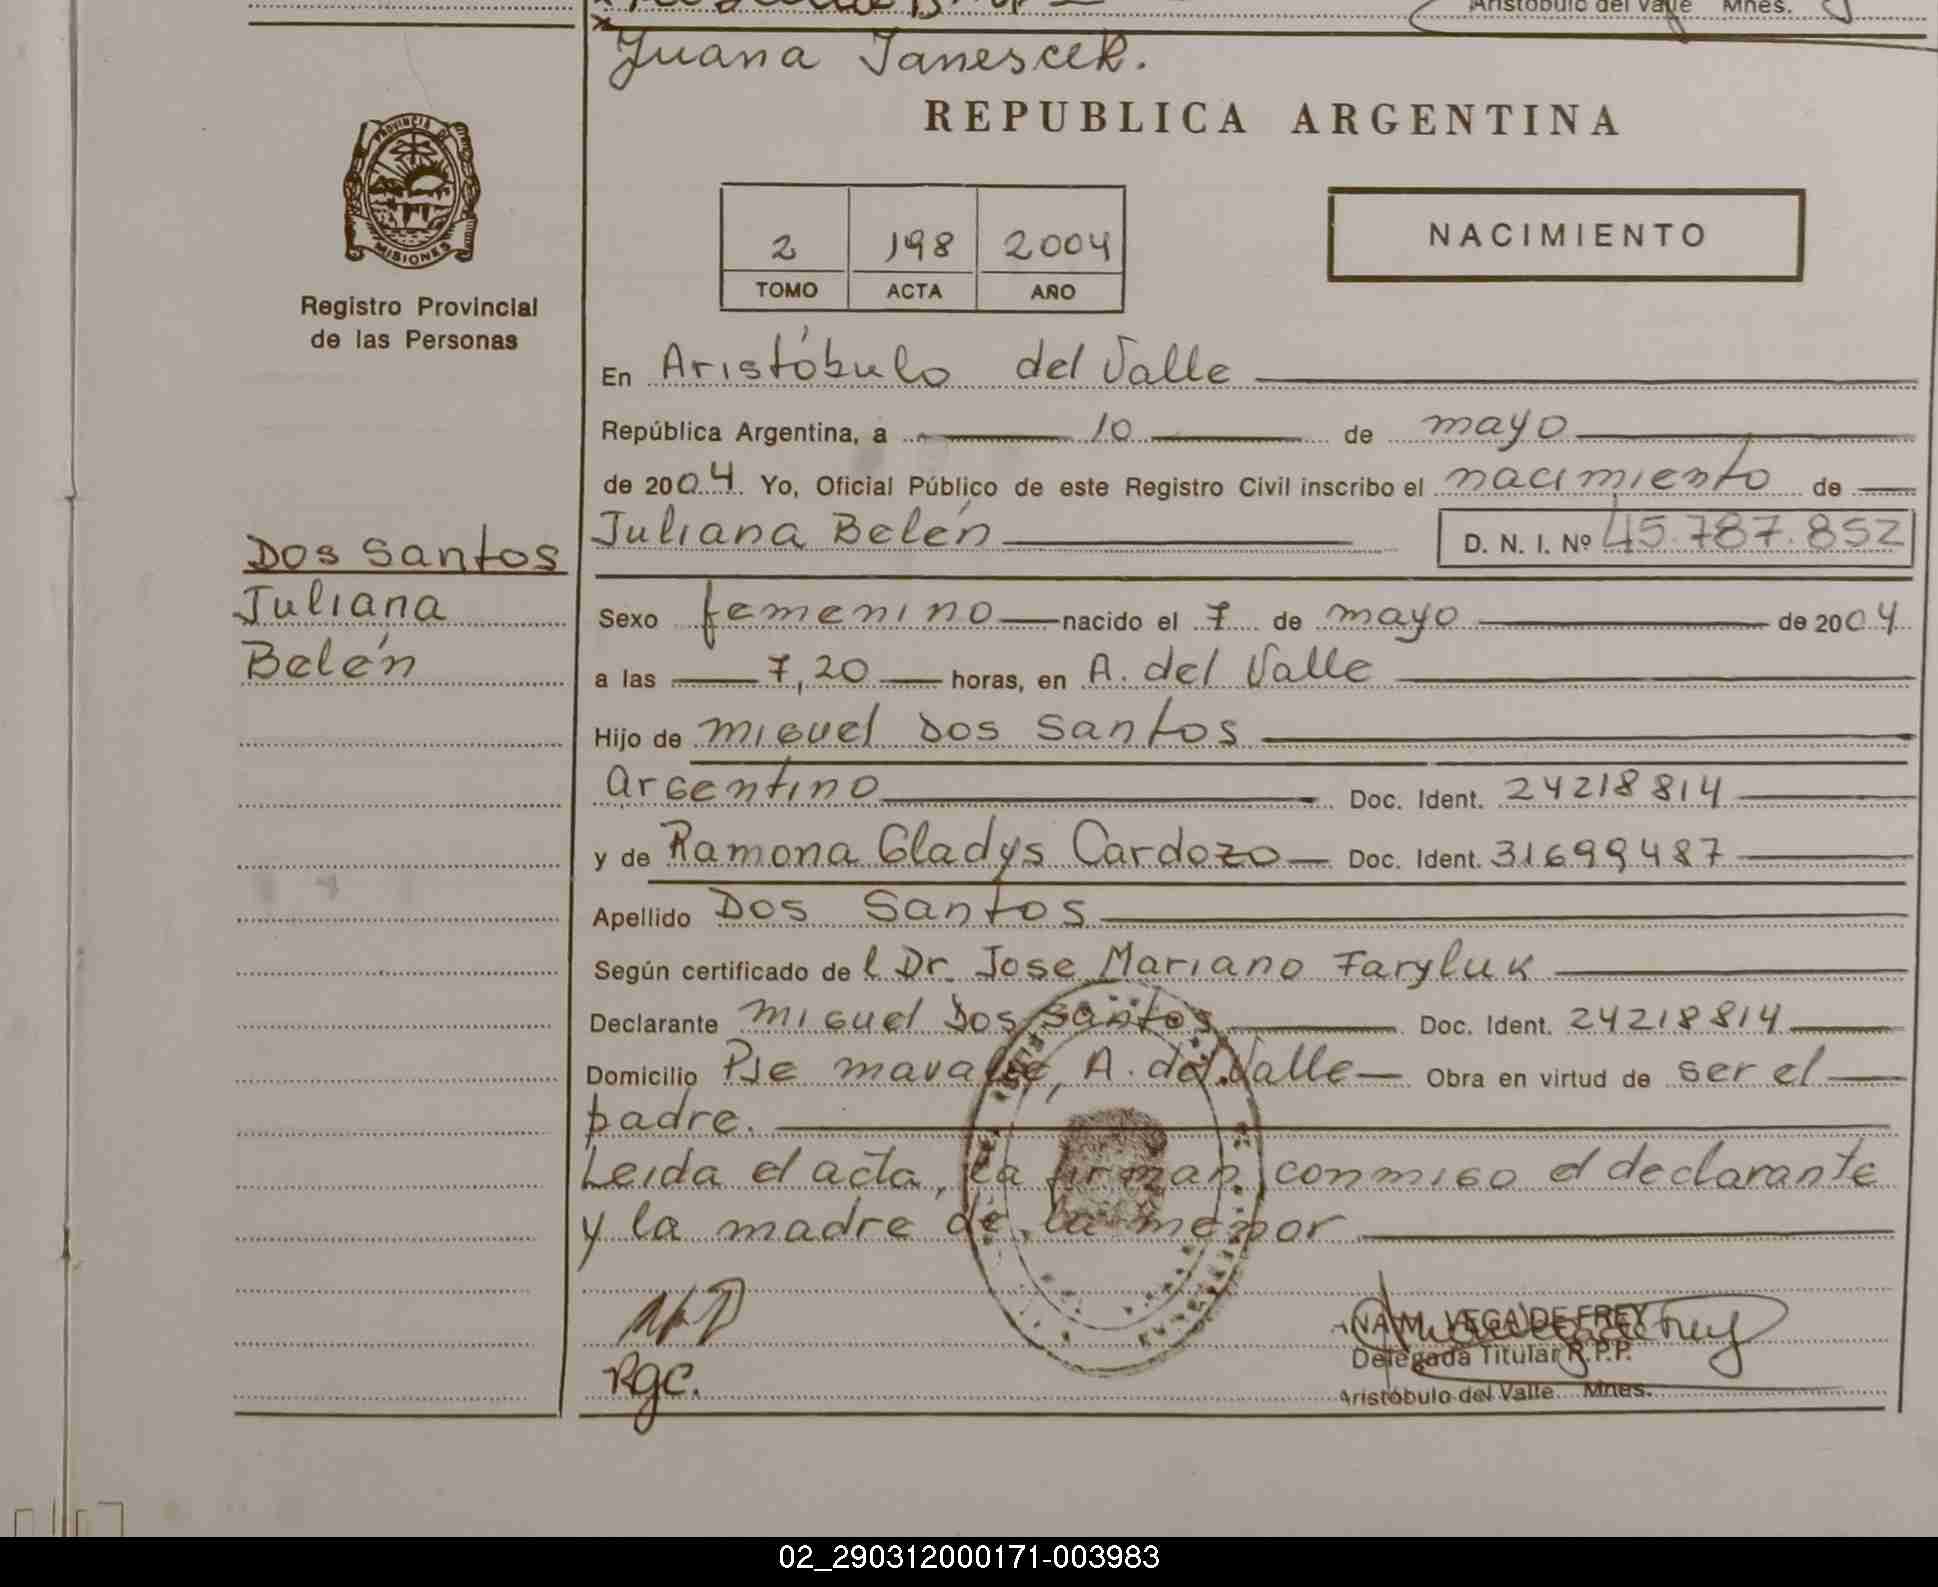 Aristóbulo del Valle Mnes.
Juana Janescek.
REPUBLICA ARGENTINA
PROVINCIA DE
MISIONES
Registro Provincial
de las Personas
2 198 2004
TOMO ACTA AÑO
NACIMIENTO
En Aristóbulo del Valle
República Argentina, a 10 de mayo
de 2004. Yo, Oficial Público de este Registro Civil inscribo el nacimiento de
Juliana Belén D. N. I. Nº 45.787.852
Dos Santos
Juliana
Belén
Sexo femenino nacido el 7 de mayo de 2004
a las 7,20 horas, en A. del Valle
Hijo de Miguel Dos Santos
argentino Doc. Ident. 24218814
y de Ramona Gladys Cardozo Doc. Ident. 31699487
Apellido Dos Santos
Según certificado del Dr. Jose Mariano Faryluk
Declarante Miguel Dos Santos Doc. Ident. 24218814
Domicilio Pje A. del Valle Obra en virtud de ser el
padre.
Leida el acta, la firman conmigo el declarante
y la madre de la menor
RgC.
NA M. VEGA DE FREY
Delegada Titular R.P.P.
Aristóbulo del Valle Mnes.
02_290312000171-003983